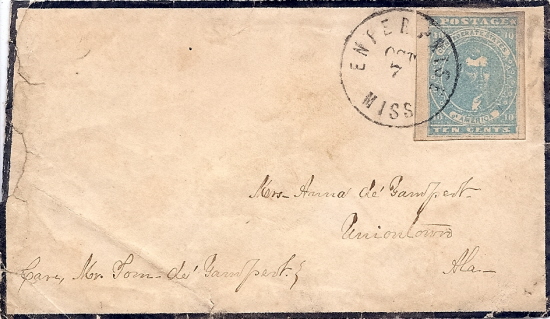 POSTAGE
CONFEDERATE STATES
10 10
10 10
OF AMERICA
TEN CENTS
ENTERPRISE
OCT
7
MISS
Mrs. Anna de' Yampert.
Uniontown
Care, Mr Tom de' Yampert. Ala